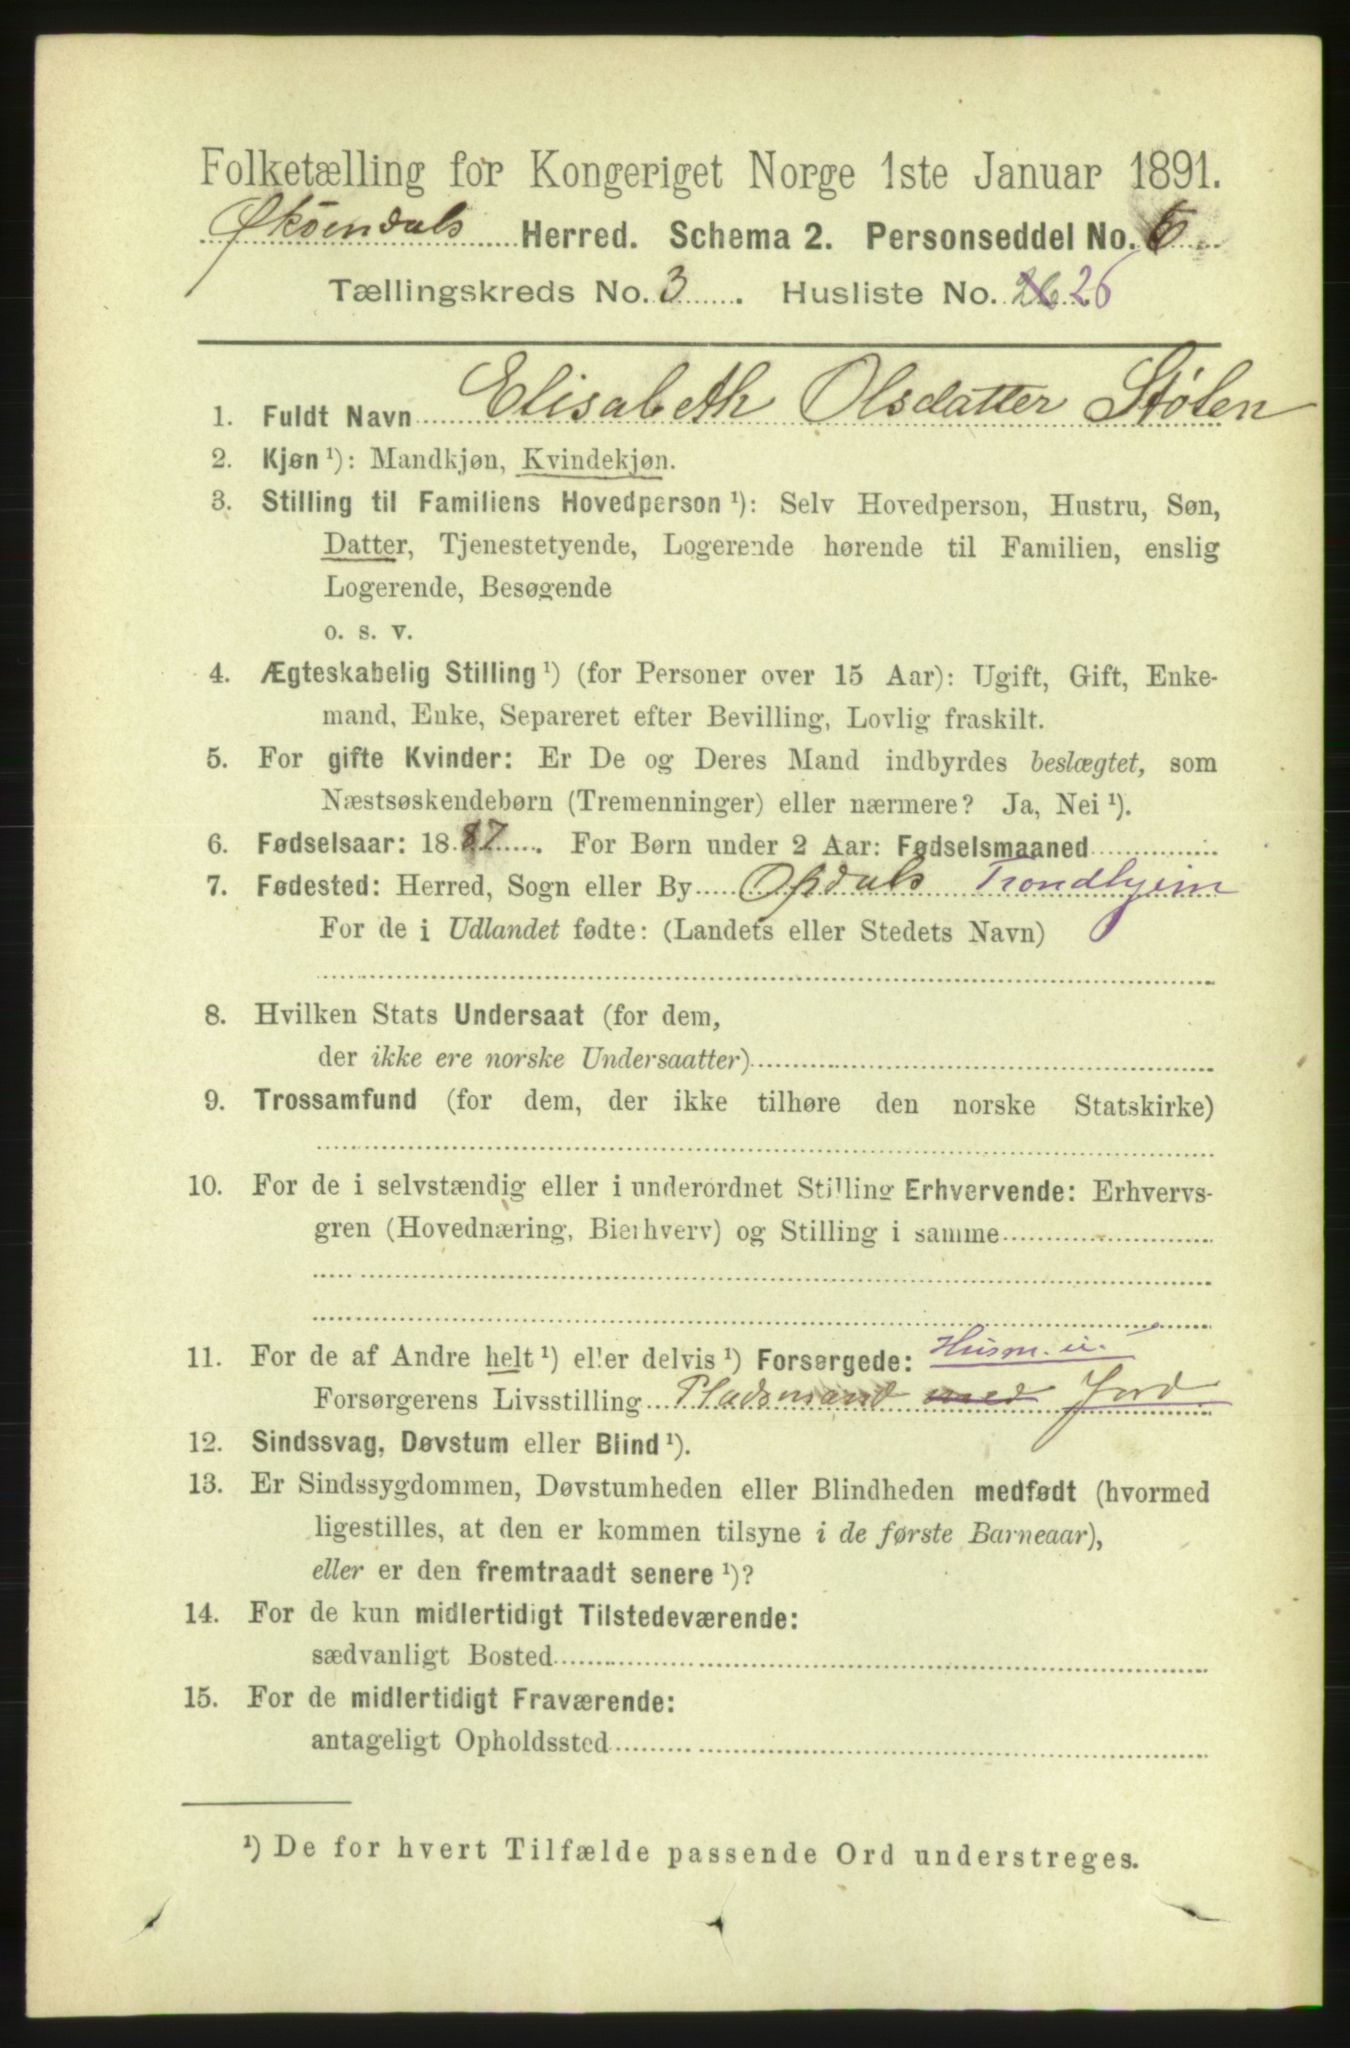 Folketælling for Kongeriget Norge 1ste Januar 1891.
Øksendals Herred. Schema 2. Personseddel No. 6
Tællingskreds No. 3. Husliste No. 26 26
1. Fuldt Navn Elisabeth Olsdatter Stølen
2. Kjøn ¹): Mandkjøn, Kvindekjøn.
3. Stilling til Familiens Hovedperson ¹): Selv Hovedperson, Hustru, Søn,
Datter, Tjenestetyende, Logerende hørende til Familien, enslig
Logerende, Besøgende
o. s. v.
4. Ægteskabelig Stilling ¹) (for Personer over 15 Aar): Ugift, Gift, Enke-
mand, Enke, Separeret efter Bevilling, Lovlig fraskilt.
5. For gifte Kvinder: Er De og Deres Mand indbyrdes beslægtet, som
Næstsøskendebørn (Tremenninger) eller nærmere? Ja, Nei ¹).
6. Fødselsaar: 1887. For Børn under 2 Aar: Fødselsmaaned
7. Fødested: Herred, Sogn eller By Opdals Trondhjem
For de i Udlandet fødte: (Landets eller Stedets Navn)
8. Hvilken Stats Undersaat (for dem,
der ikke ere norske Undersaatter)
9. Trossamfund (for dem, der ikke tilhøre den norske Statskirke)
10. For de i selvstændig eller i underordnet Stilling Erhvervende: Erhvervs-
gren (Hovednæring, Bierhverv) og Stilling i samme
11. For de af Andre helt ¹) eller delvis ¹) Forsørgede: Husm. u.
Forsørgerens Livsstilling Pladsmand med Jord
12. Sindssvag, Døvstum eller Blind ¹).
13. Er Sindssygdommen, Døvstumheden eller Blindheden medfødt (hvormed
ligestilles, at den er kommen tilsyne i de første Barneaar),
eller er den fremtraadt senere ¹)?
14. For de kun midlertidigt Tilstedeværende:
sædvanligt Bosted
15. For de midlertidigt Fraværende:
antageligt Opholdssted
¹) De for hvert Tilfælde passende Ord understreges.